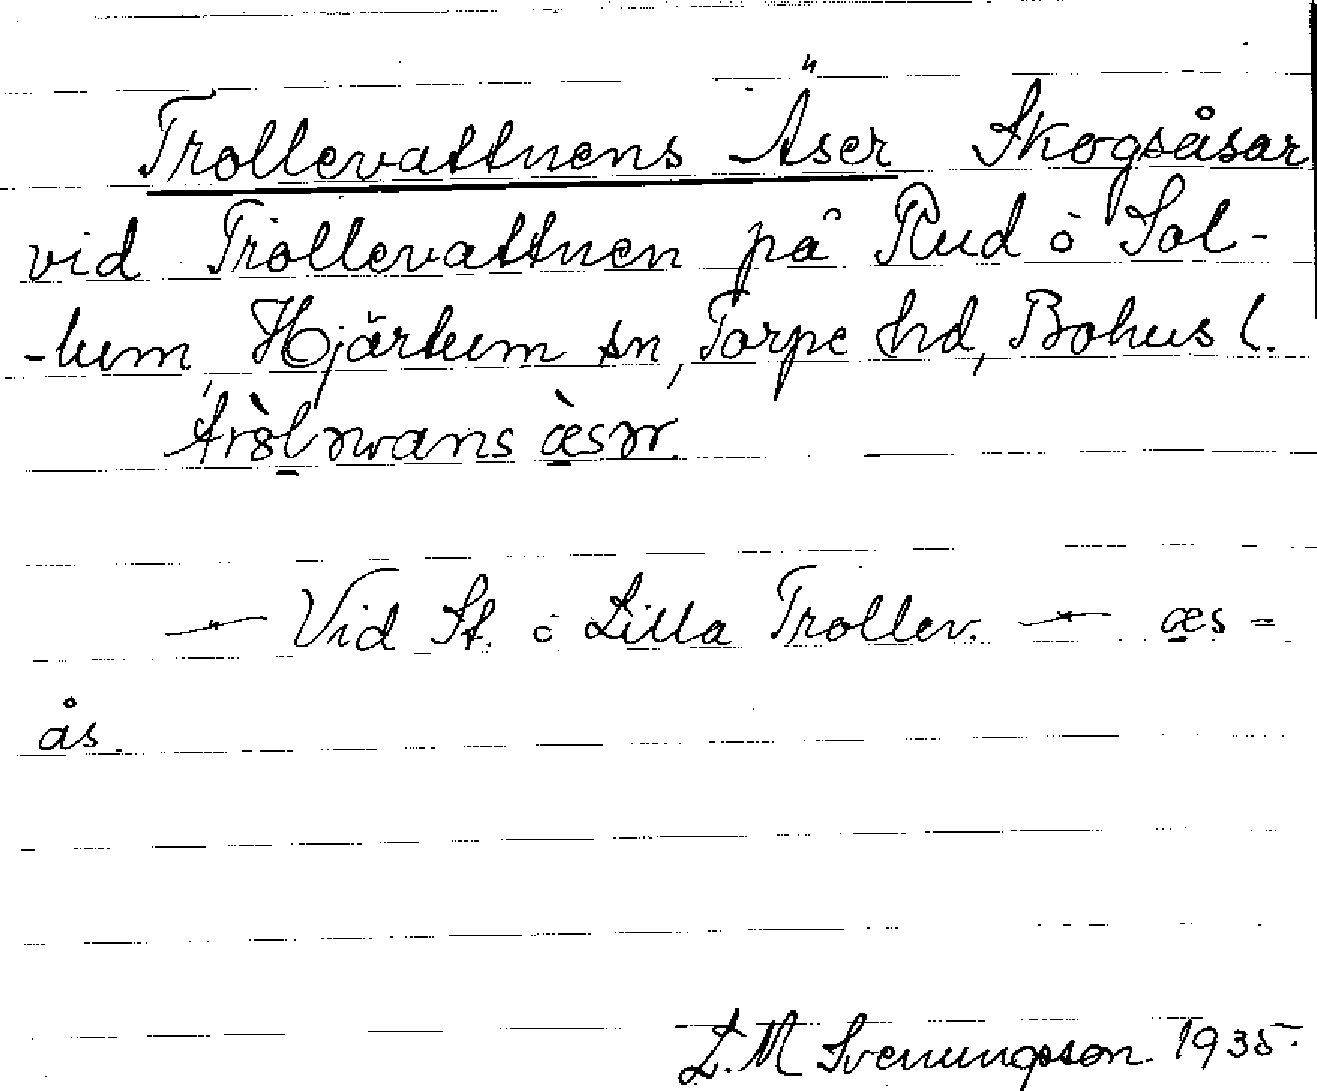 Trollevattnens Äser Skogsåsar
vid Trollevattnen på Rud ö Sol-
-hem, Hjärtum sn, Torpe hd, Bohus l.
Vid St. ö Lilla Trollev. æs =
ås.
L. M Svenungsson. 1935.